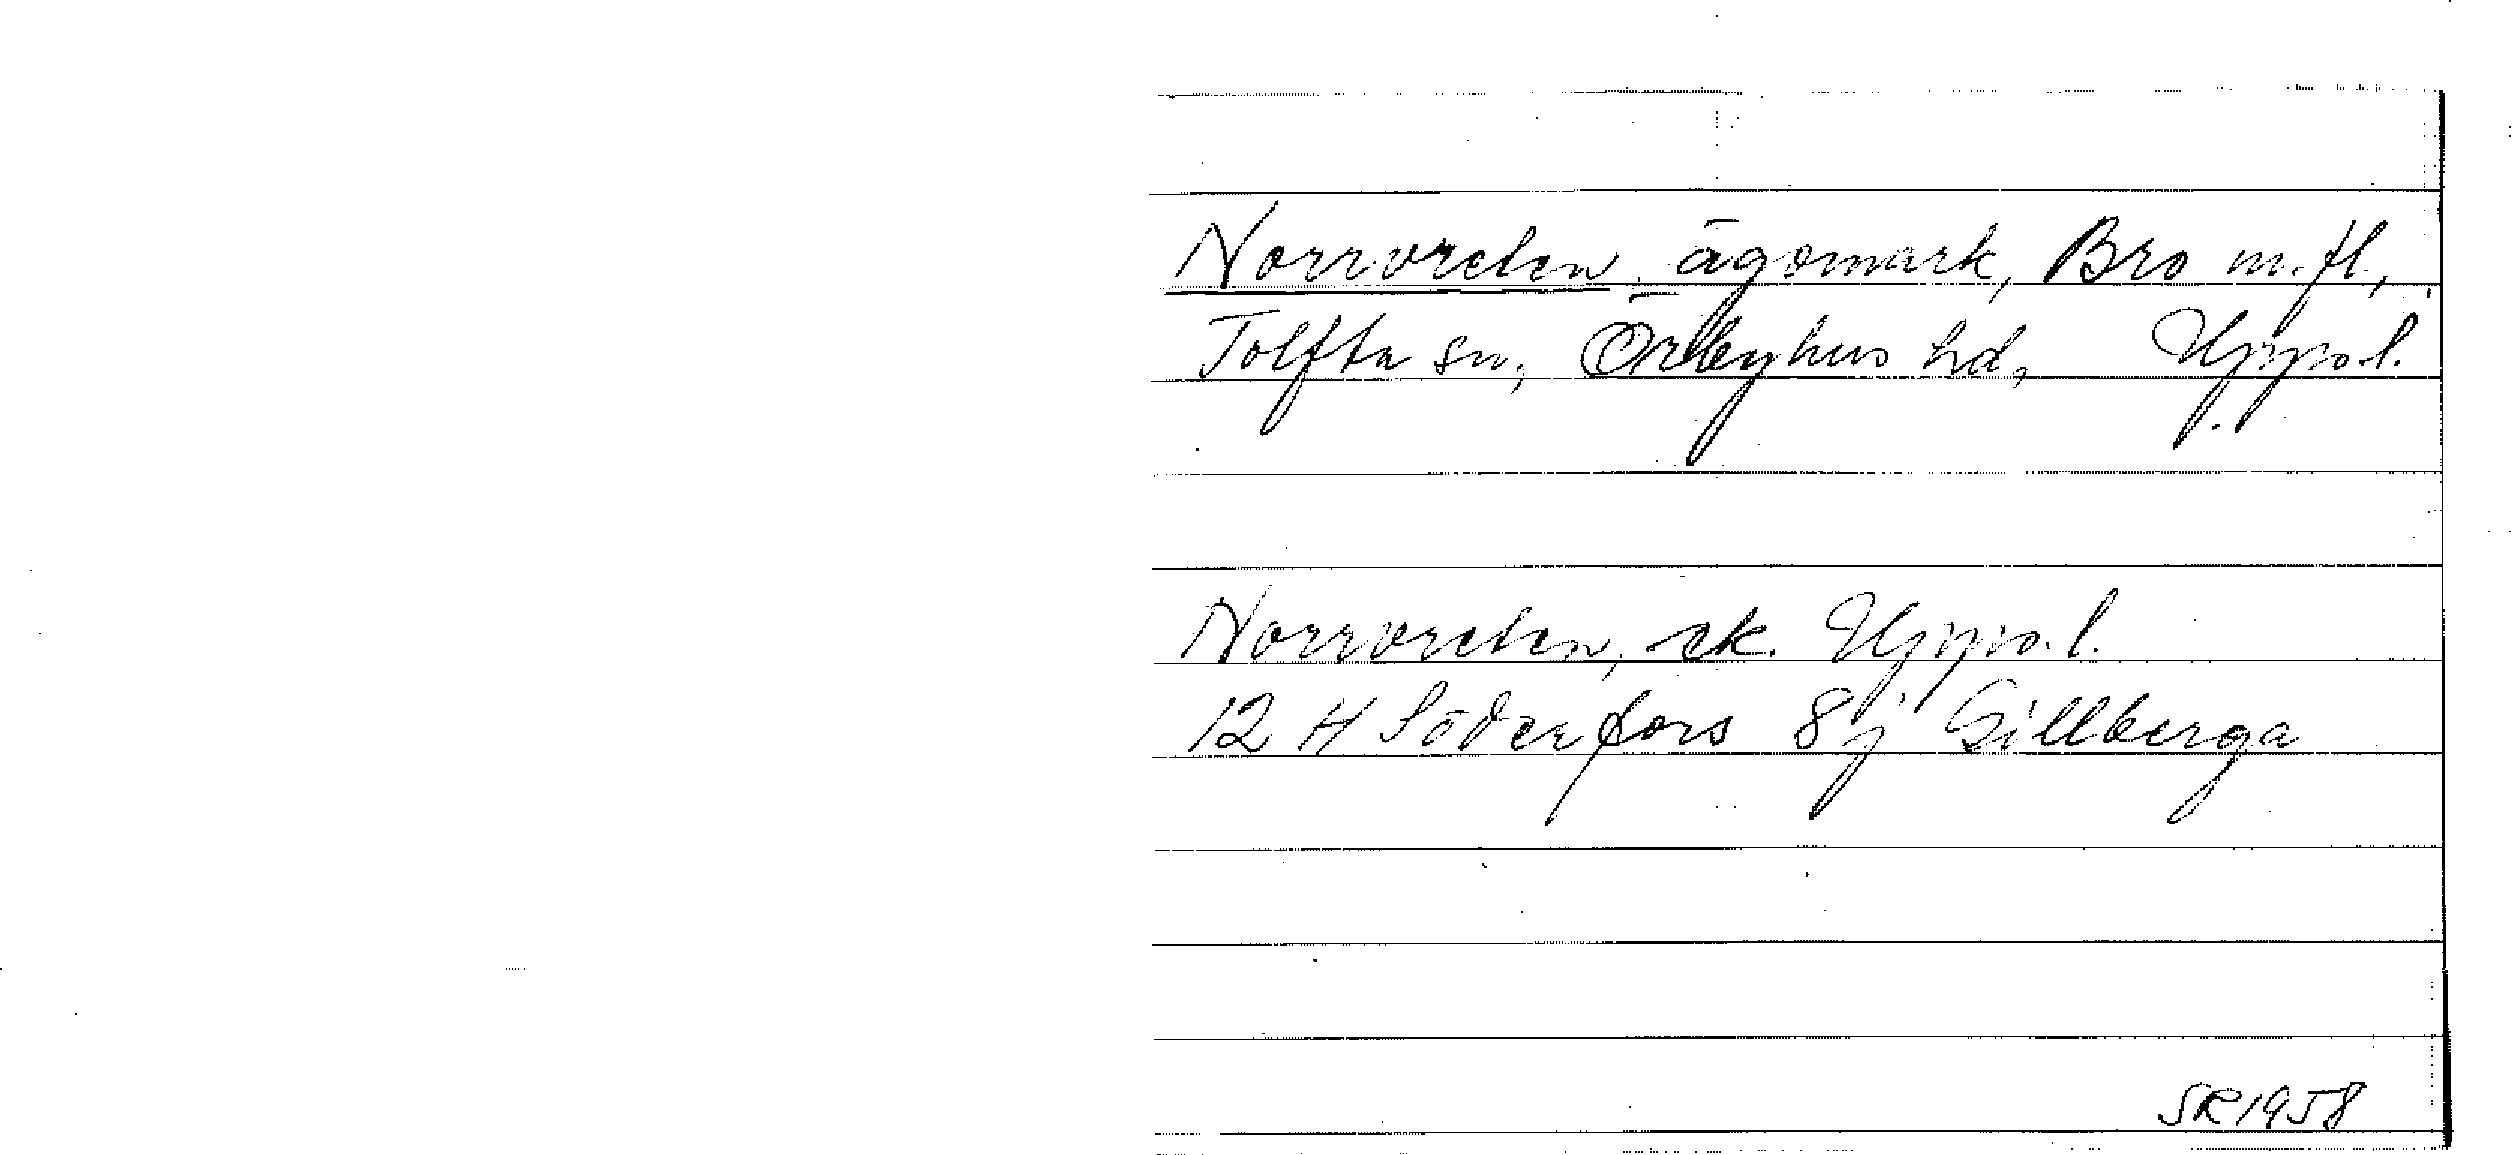 Norrvreten, ägomark, Bro m.fl.,
Tolfta sn, Örbyhus hd, Upps.l.
Norrvreten, ek. Upps.l.
12 H Söderfors 8j Gillberga
SR 1958